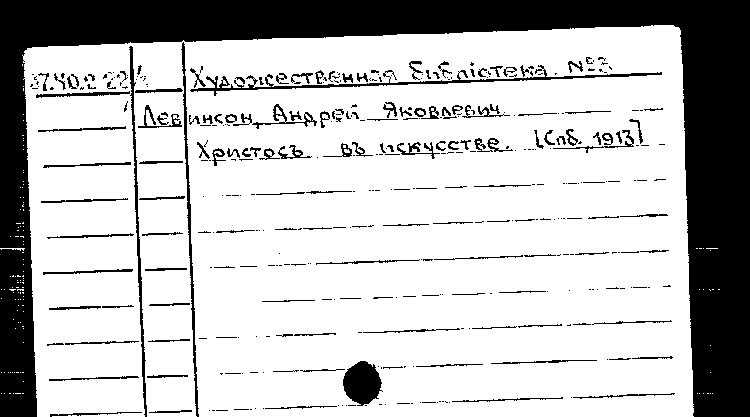 37.40.2 22/2 Художественная библiотека. № 3
Левинсон, Андрей Яковлевич
Христосъ въ искусстве. [Спб., 1913]